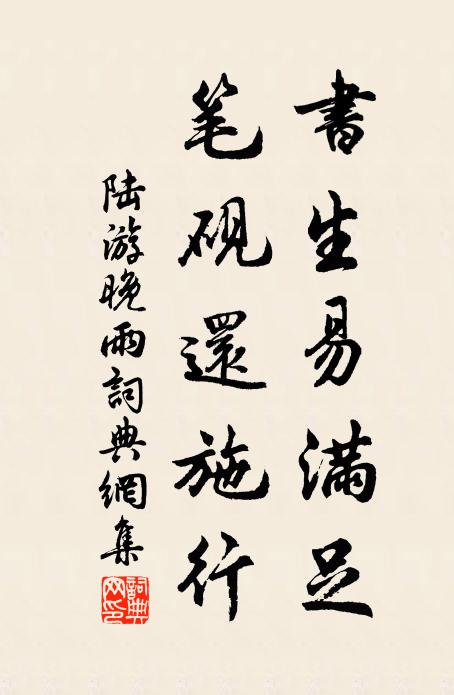 書生易滿足
笔硯還施行
陆游晚雨詞典網集
詞典网印